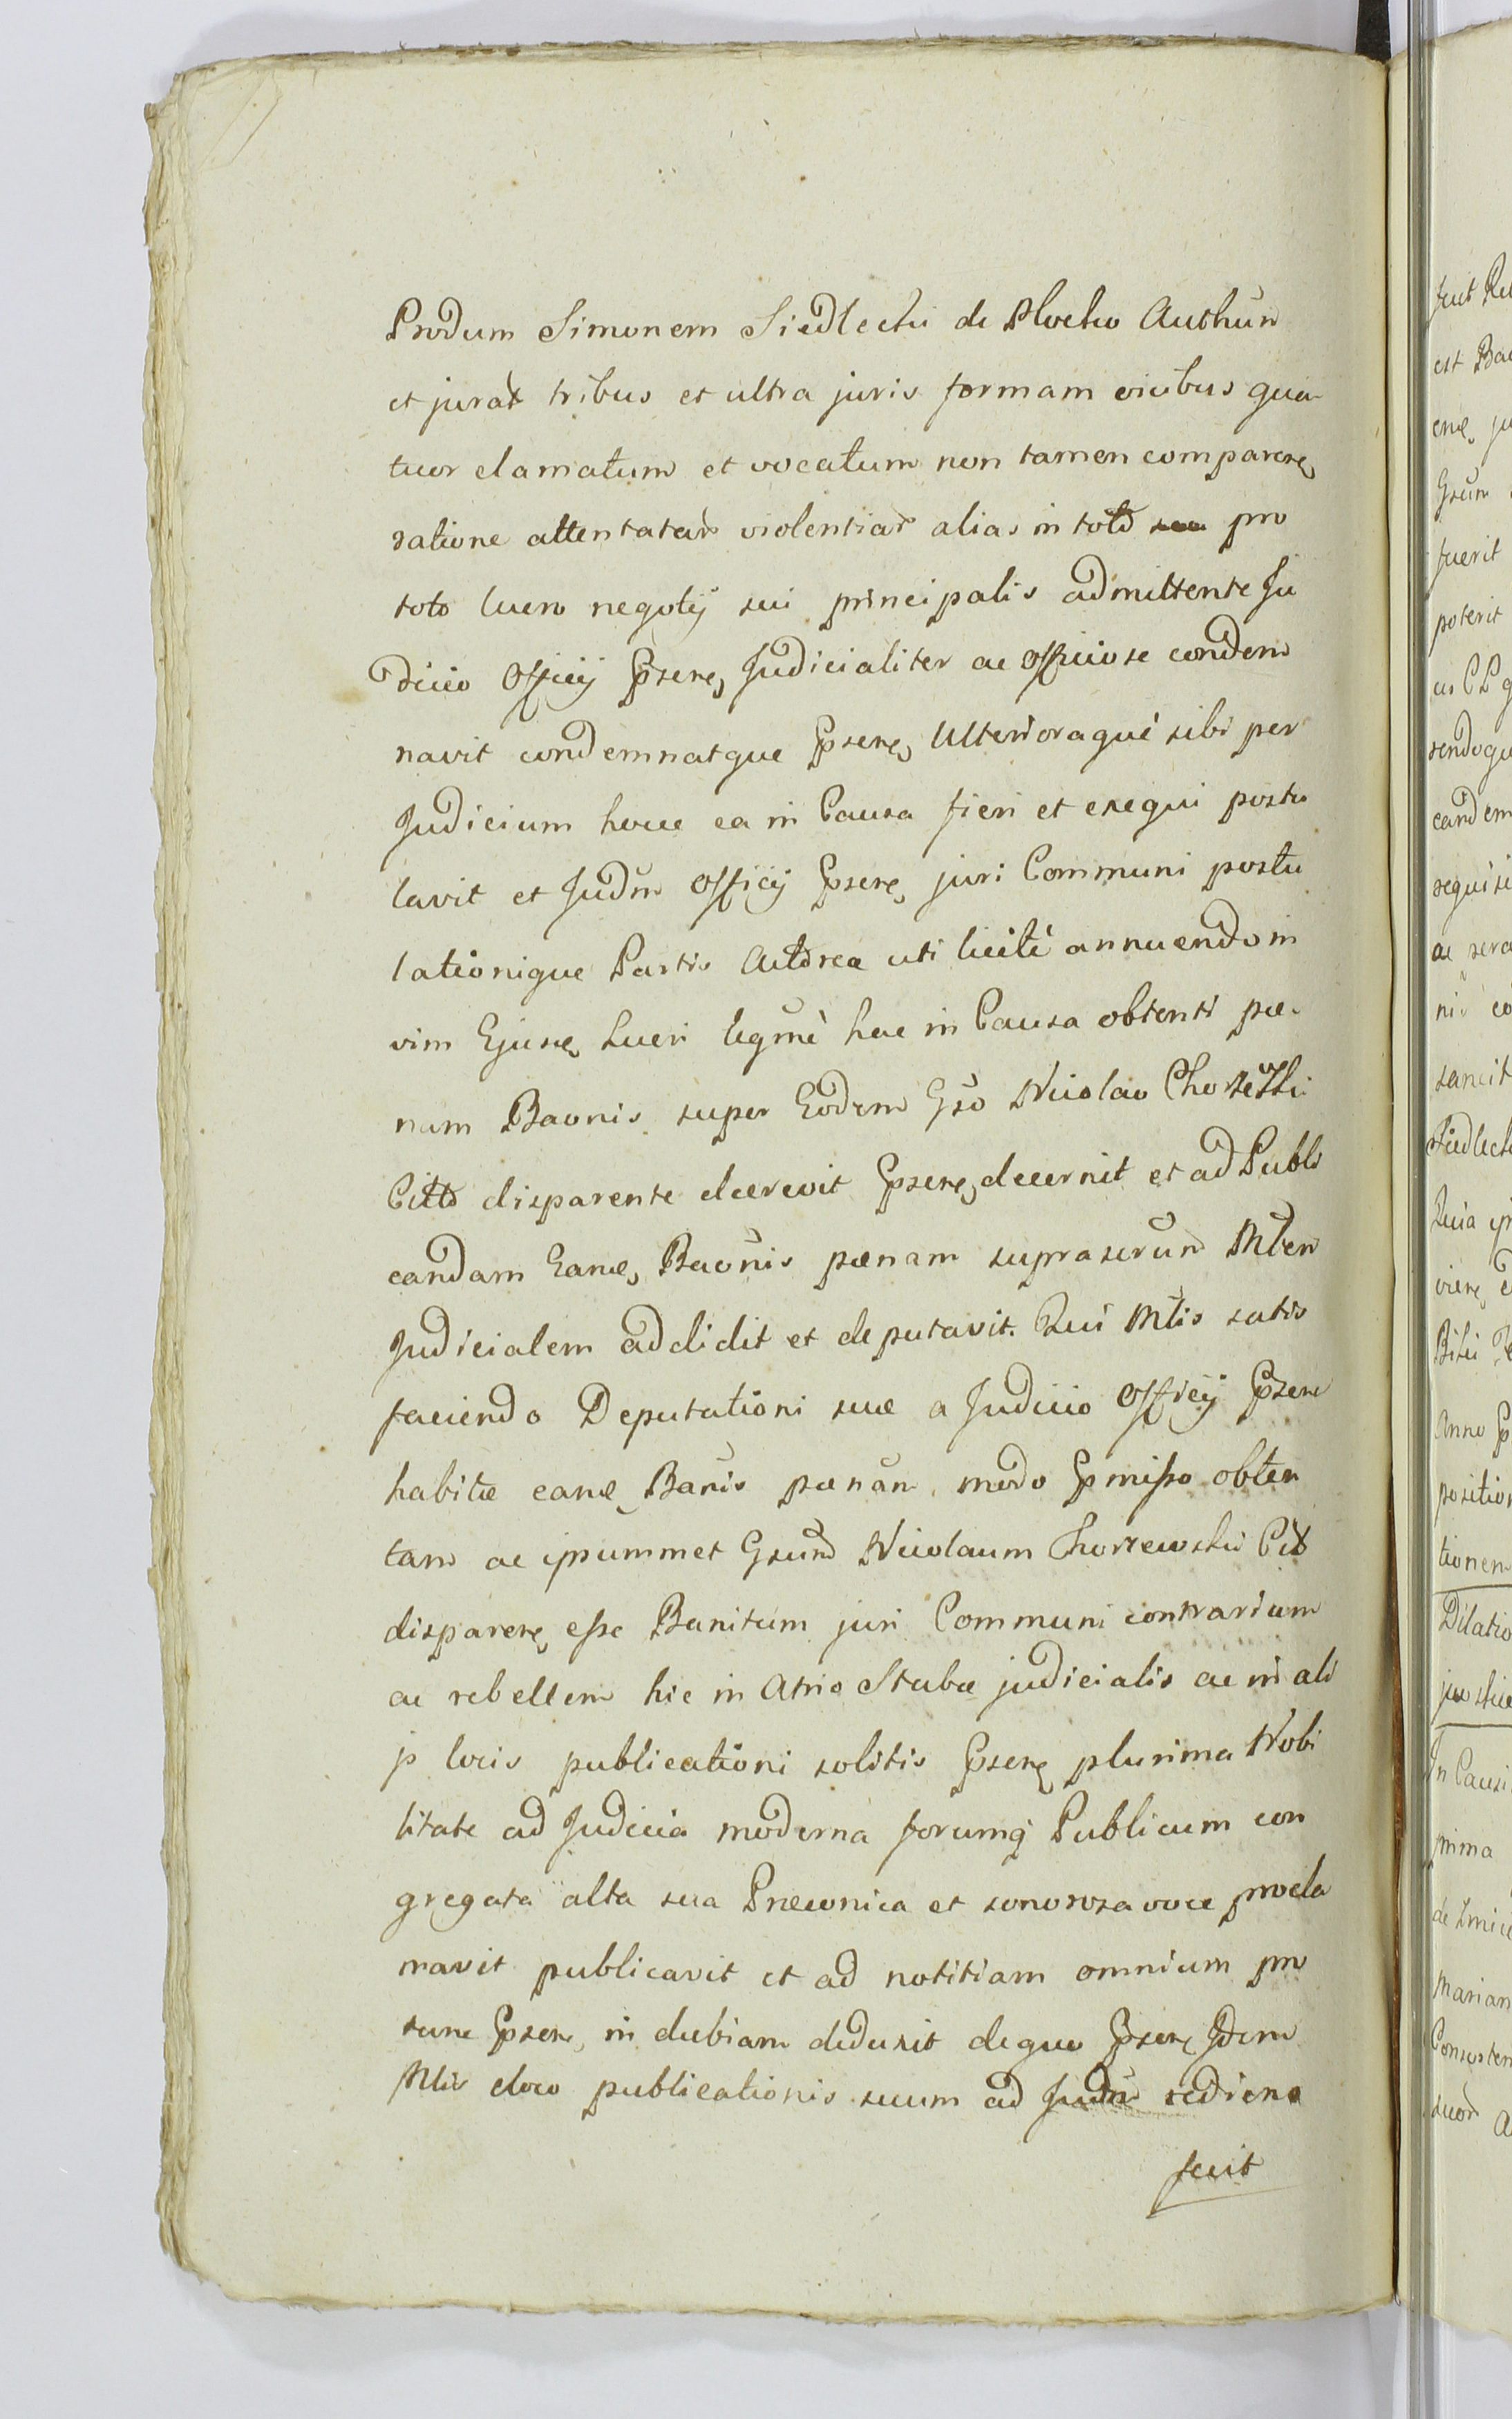 Produm Simonem Siedlecki de Plocko Authũn
et jurat̃ tribus et ultra juris formam vicibus qua-
tuor clamatum et vocatum non tamen comparen̨
ratione attentatar̃ violentiar̃ alias in toto pro
toto lucro negotÿ sui principalis admittente Ju
dicio Officÿ Ppsen̨ Judicialiter ac officiose condem
navit condemnatque Ppsen̨ Ulterioraque sibi per
Judicium hocce ea in Causa fieri et exequi postu
lavit et Judm̃ Officÿ Ppsen̨ juri Communi postu
lationique Partis Actorea uti licite annuendo in
vim Ejusm̨ Lucri legme hac in Causa obtenti pœ-
nam Baonis super Eodem Gso Nicolao Chorzewski
Citto disparente decrevit Ppsen̨ decernit et ad Publi
candam Eam̨ Baonis pœnam suprascrum Mlem
Judicialem addidit et deputavit. Qui Mlis satis
faciendo Deputationi suæ a Judicio Officÿ Ppsen
habitæ eam̨ Banis pœnam modo Ppmisso obten
tam ac ipsummet Gsum Nicolaum Chorzewski Cit
disparen̨ esse Banitum juri Communi contrarium
ac rebellem hic in Atrio Stubæ judicialis ac in ali
js locis publicationi solitis Ppsen̨ plurima Nobi
litate ad Judicia moderna forumq̨ Publicum con
gregata alta sua Præconica et sonorosa voce procla
mavit publicavit et ad notitiam omnium pro
tunc Ppsen̨ in dubiam deduxit de quo Ppsen̨ Idem
Mlis eloco publicationis suum ad Judm̃ rediens
fecit
fecit Re
est Ba
Gsum
fuerit
poterit
candem
requisi
sancit
Siedleck
Quia ip
Anno Pp
position
tionem
Dilatio
In Causi
prima
Marian
Consisten